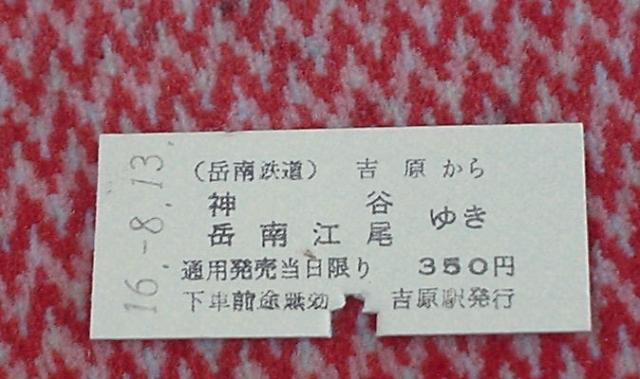 16.-8.13.
(岳南鉄道) 吉原から
神谷
岳南江尾 ゆき
通用発売当日限り 350円
下車前途無効 吉原駅発行